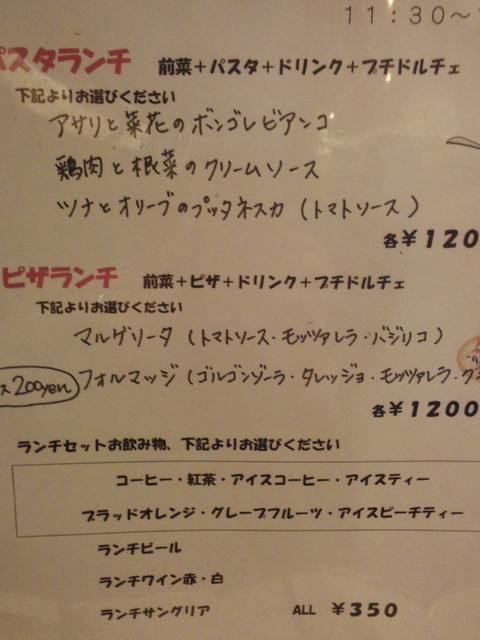 11：30～
パスタランチ　前菜＋パスタ＋ドリンク＋プチドルチェ
下記よりお選びください
アサリと菜花のボンゴレビアンコ
鶏肉と根菜のクリームソース
ツナとオリーブのプッタネスカ（トマトソース）
各￥120
ピザランチ　前菜＋ピザ＋ドリンク＋プチドルチェ
下記よりお選びください
マルゲリータ（トマトソース・モッツァレラ・バジリコ）
ス200yen フォルマッジ（ゴルゴンゾーラ・タレッジョ・モッツァレラ・グ
各￥1200
ランチセットお飲み物、下記よりお選びください
コーヒー・紅茶・アイスコーヒー・アイスティー
ブラッドオレンジ・グレープフルーツ・アイスピーチティー
ランチビール
ランチワイン赤・白
ランチサングリア　ALL　￥350